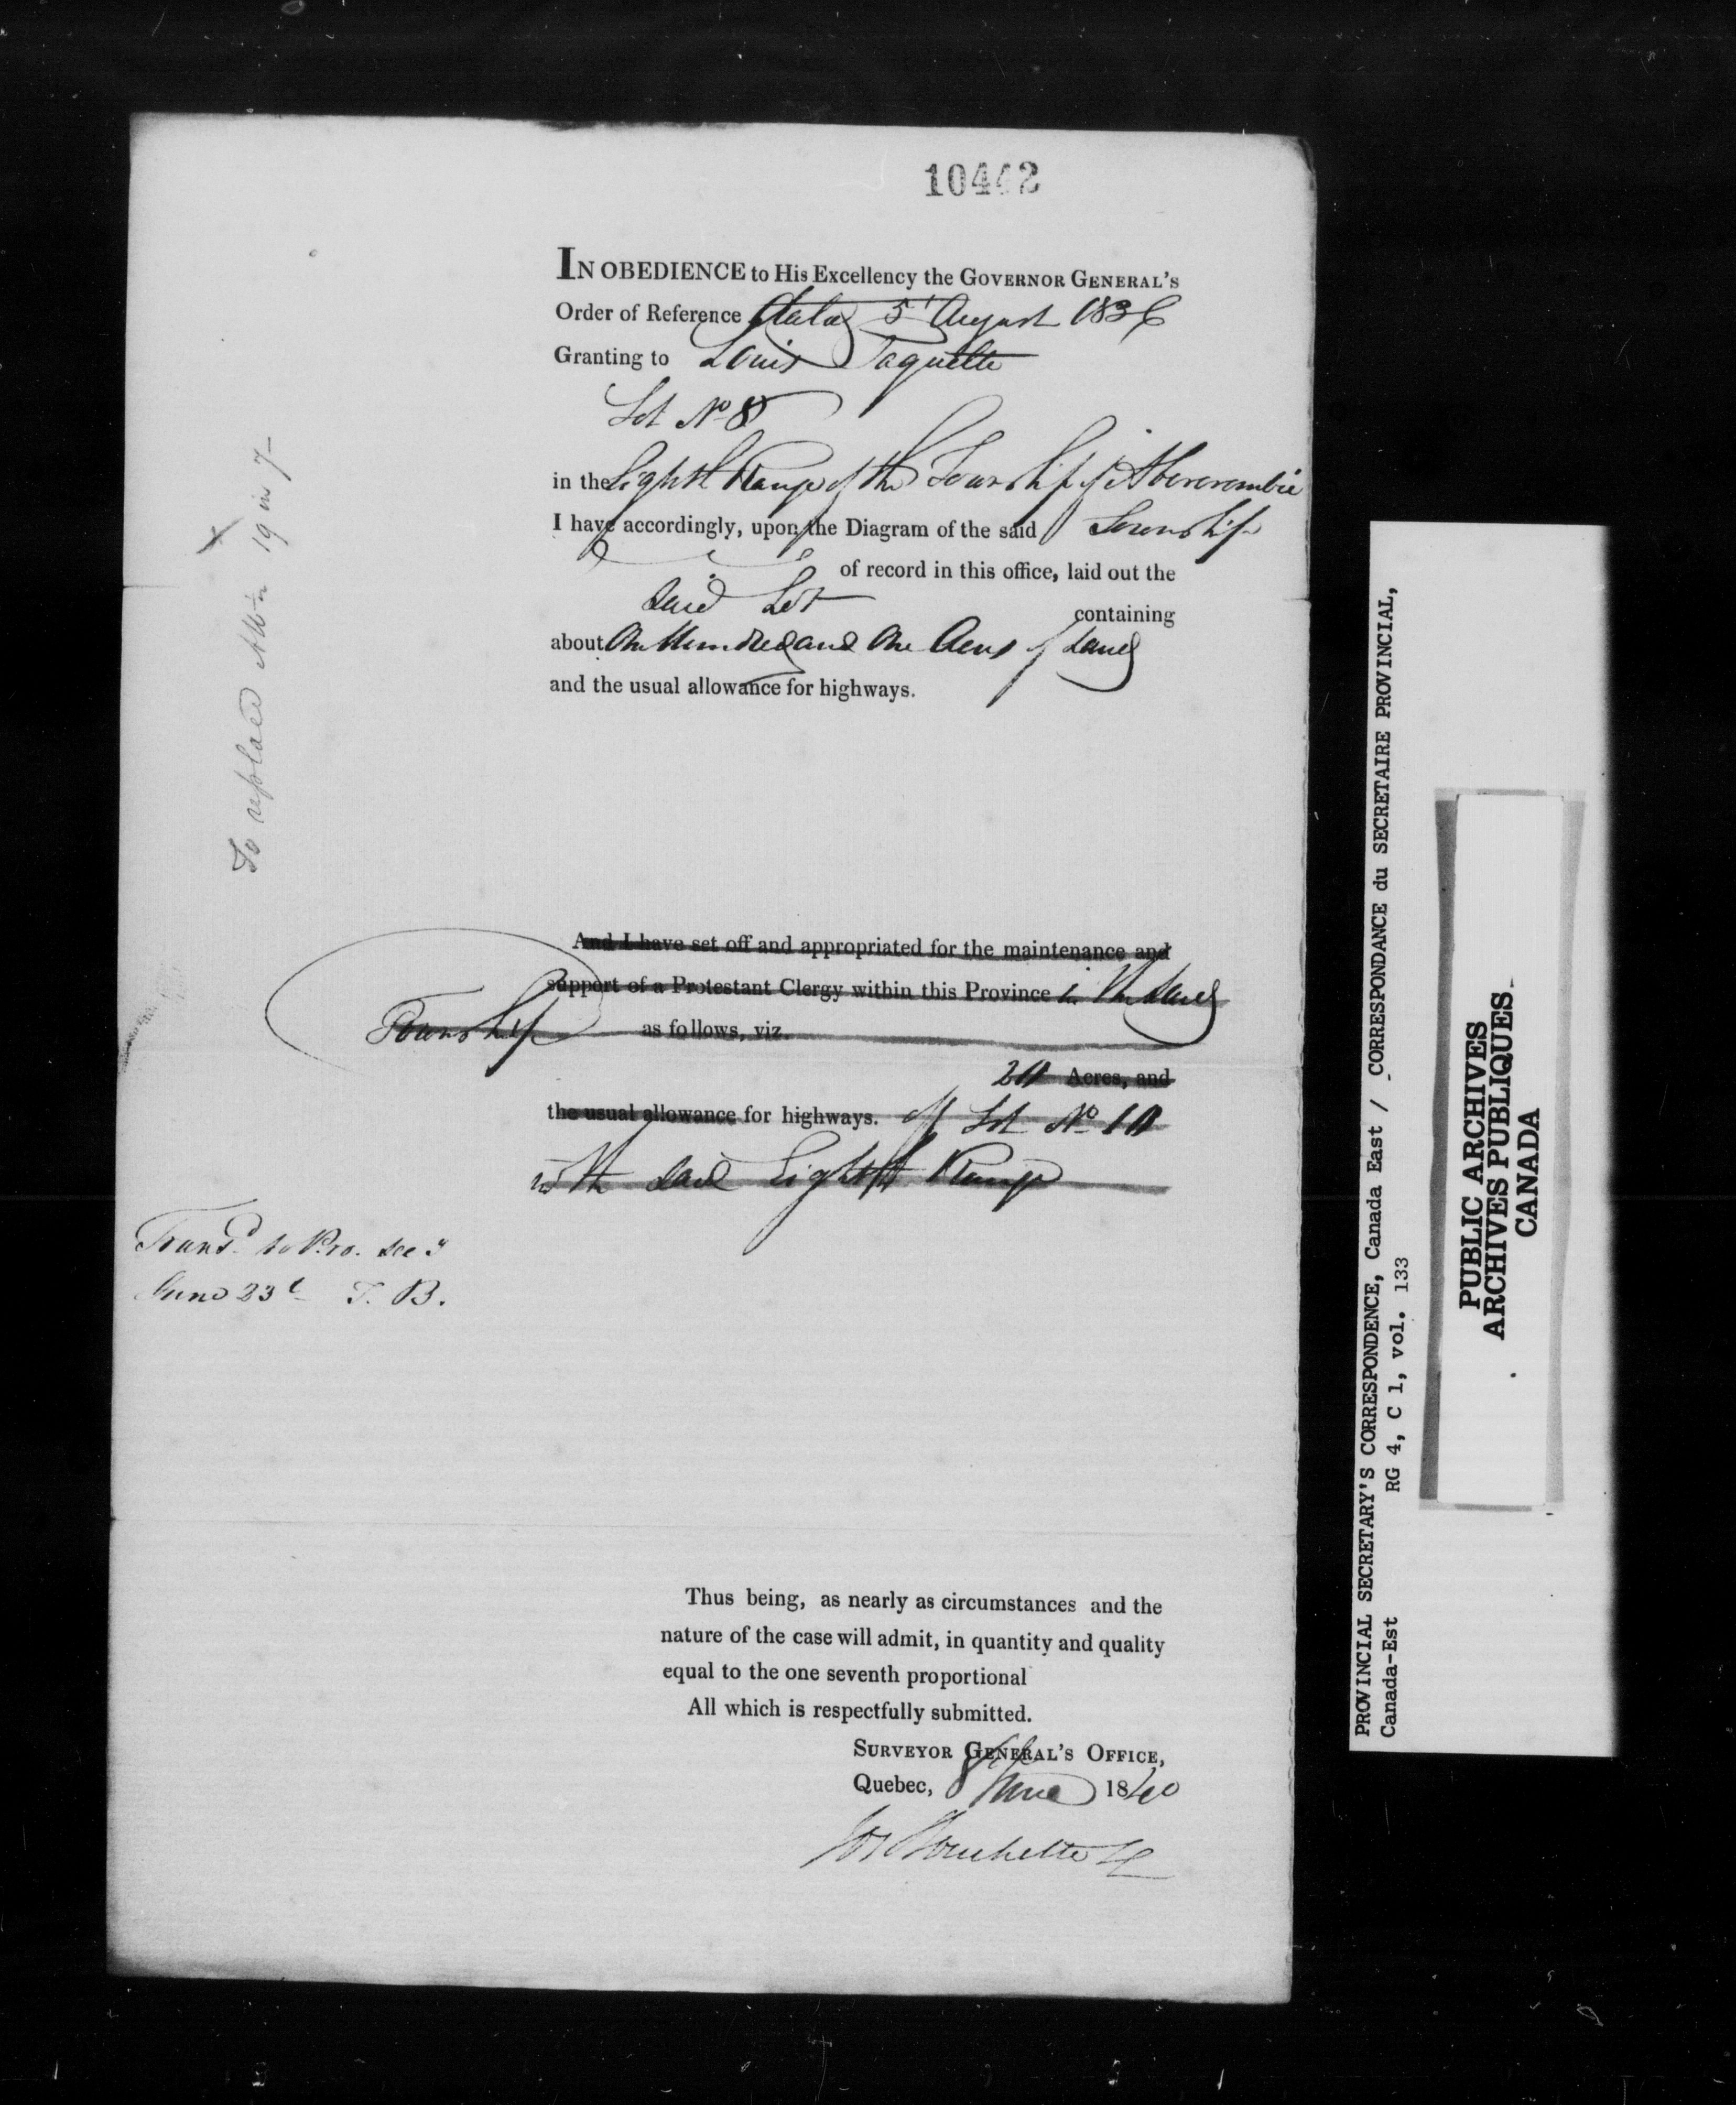 10442
IN OBEDIENCE to His Excellency the GOVERNOR GENERAL'S
Order of Reference dated 5t August 1836
Granting to Louis Paquette
Lot No 8
in the Eighth Range of the Township of Abercrombie
I have accordingly, upon the Diagram of the said Township
of record in this office, laid out the
said Lot
containing
about One Hundred and One Acres of Land
and the usual allowance for highways.
To replace 19 in 7
And I have set off and appropriated for the maintenance and
support of a Protestant Clergy within this Province in the said
Township as follows, viz.
20 Acres, and
the usual allowance for highways. of Lot No 10
in the said Eighth Range
Transd to Pro. Secy
June 23d T. B.
Thus being, as nearly as circumstances and the
nature of the case will admit, in quantity and quality
equal to the one seventh proportional
All which is respectfully submitted.
SURVEYOR GENERAL'S OFFICE,
Quebec, 8th June 1840
Jos Bouchette
PROVINCIAL SECRETARY'S CORRESPONDENCE, Canada East / CORRESPONDANCE du SECRETAIRE PROVINCIAL,
Canada-Est RG 4, C 1, vol. 133
PUBLIC ARCHIVES
ARCHIVES PUBLIQUES
CANADA